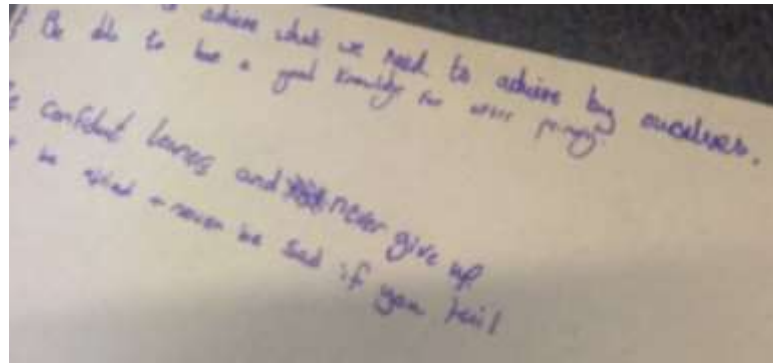 achieve what we need to achieve by ourselves.
Be able to have a good knowledge for after primary
confident learners and never give up
be and never be sad if you fail